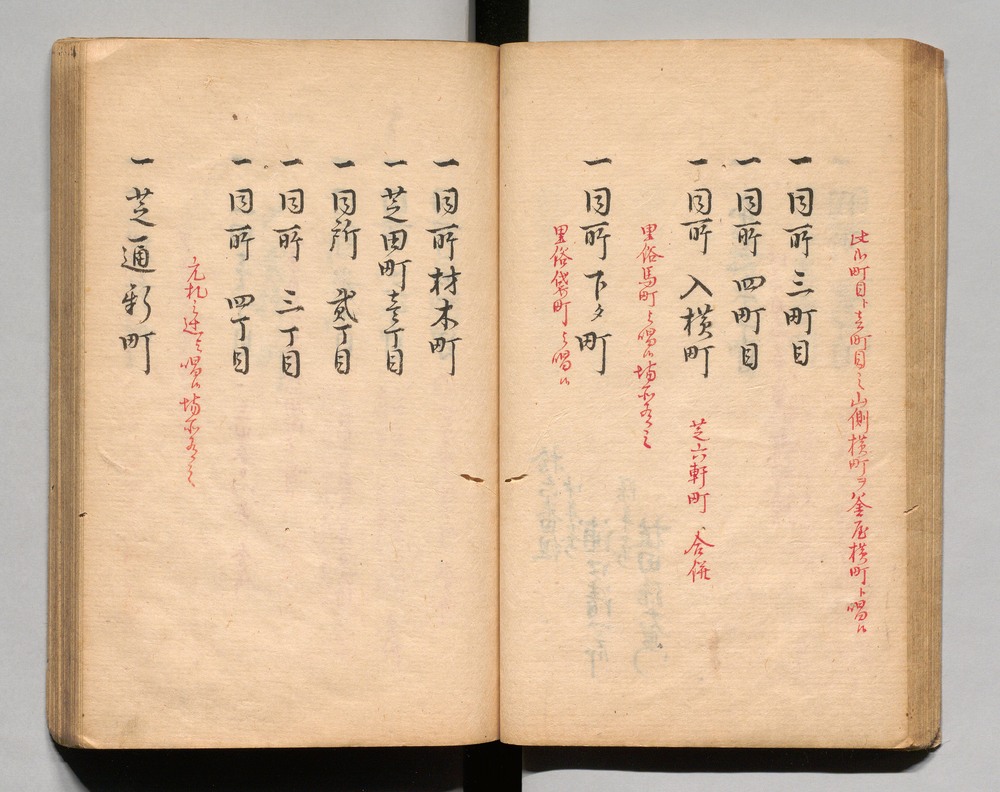 此町目ト壱町目之山側横町ヲ釜屋横町ト唱候
一同所三町目
一同所四町目
一同所入横町 芝六軒町へ合併
里俗馬町と唱候場所有之
一同所下タ町
里俗袋町と唱候
一同所材木町
一芝田町壱丁目
一同所貳丁目
一同所三丁目
一同所四丁目
元札之辻と唱候場所有之
一芝通新町